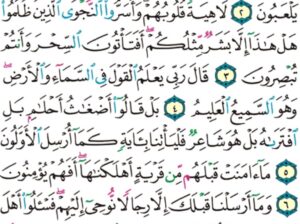 يَلْعَبُونَ ٢ لَاهِيَةً قُلُوبُهُمْ وَأَسَرُّوا۟ ٱلنَّجْوَى ٱلَّذِينَ ظَلَمُوا۟
هَلْ هَٰذَآ إِلَّا بَشَرٌ مِّثْلُكُمْ أَفَتَأْتُونَ ٱلسِّحْرَ وَأَنتُمْ
تُبْصِرُونَ ٣ قَالَ رَبِّى يَعْلَمُ ٱلْقَوْلَ فِى ٱلسَّمَآءِ وَٱلْأَرْضِ
وَهُوَ ٱلسَّمِيعُ ٱلْعَلِيمُ ٤ بَلْ قَالُوٓا۟ أَضْغَٰثُ أَحْلَٰمٍۭ بَلِ
ٱفْتَرَىٰهُ بَلْ هُوَ شَاعِرٌ فَلْيَأْتِنَا بِـَٔايَةٍ كَمَآ أُرْسِلَ ٱلْأَوَّلُونَ
٥ مَآ ءَامَنَتْ قَبْلَهُم مِّن قَرْيَةٍ أَهْلَكْنَٰهَآ أَفَهُمْ يُؤْمِنُونَ
٦ وَمَآ أَرْسَلْنَا قَبْلَكَ إِلَّا رِجَالًا نُّوحِىٓ إِلَيْهِمْ فَسْـَٔلُوٓا۟ أَهْلَ